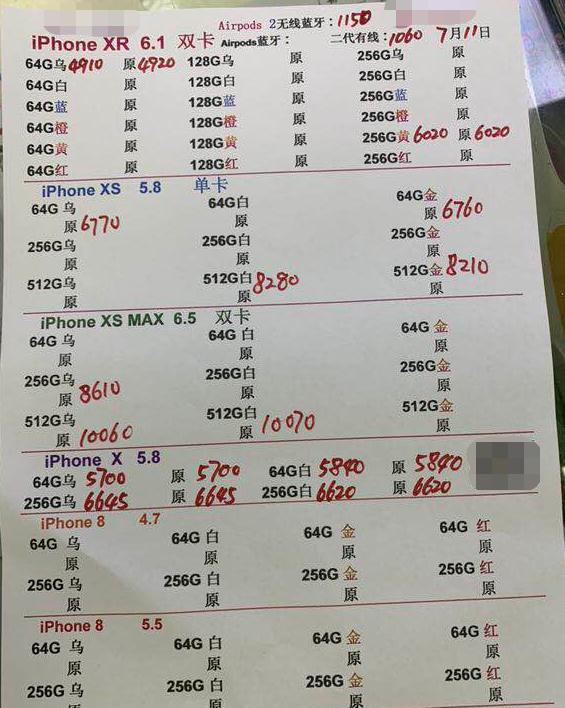 Airpods 2无线蓝牙：1150
iPhone XR 6.1 双卡 Airpods蓝牙： 二代有线：1060 7月11日
64G乌4910 原4920 128G乌 原 256G乌 原
64G白 原 128G白 原 256G白 原
64G蓝 原 128G蓝 原 256G蓝 原
64G橙 原 128G橙 原 256G橙 原
64G黄 原 128G黄 原 256G黄6020 原6020
64G红 原 128G红 原 256G红 原
iPhone XS 5.8 单卡
64G 乌 64G白 64G金
原6770 原 原6760
256G乌 256G白 256G金
原 原 原
512G乌 512G白8280 512G金8210
原 原 原
iPhone XS MAX 6.5 双卡
64G 乌 64G 白 64G 金
原 原 原
256G乌 256G白 256G金
原8610 原 原
512G乌 512G白 512G金
原10060 原10070 原
iPhone X 5.8
64G乌5700 原5700 64G白5840 原5840
256G乌6645 原6645 256G白6620 原6620
iPhone 8 4.7
64G 乌 64G 白 64G 金 64G 红
原 原 原 原
256G 乌 256G 白 256G 金 256G 红
原 原 原 原
iPhone 8 5.5
64G 乌 64G 白 64G 金 64G 红
原 原 原 原
256G 乌 256G 白 256G 金 256G 红
原 原 原 原